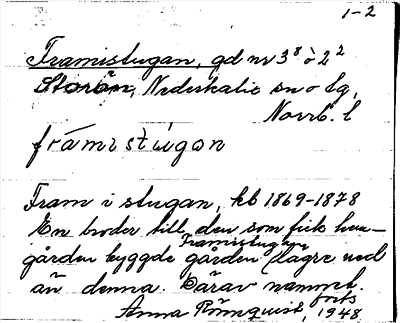 1-2
Framistugan, gd nr 3⁸ o 2²
Storån, Nederkalix sn o lg,
Norrb. l
frámistúgon
Fram i stugan, kb 1869-1878
En broder till den som fick hem-
Framistugan
gården byggde gården lägre ned
än denna. Därav namnet.
forts
Anna Rönnqvist, 1948